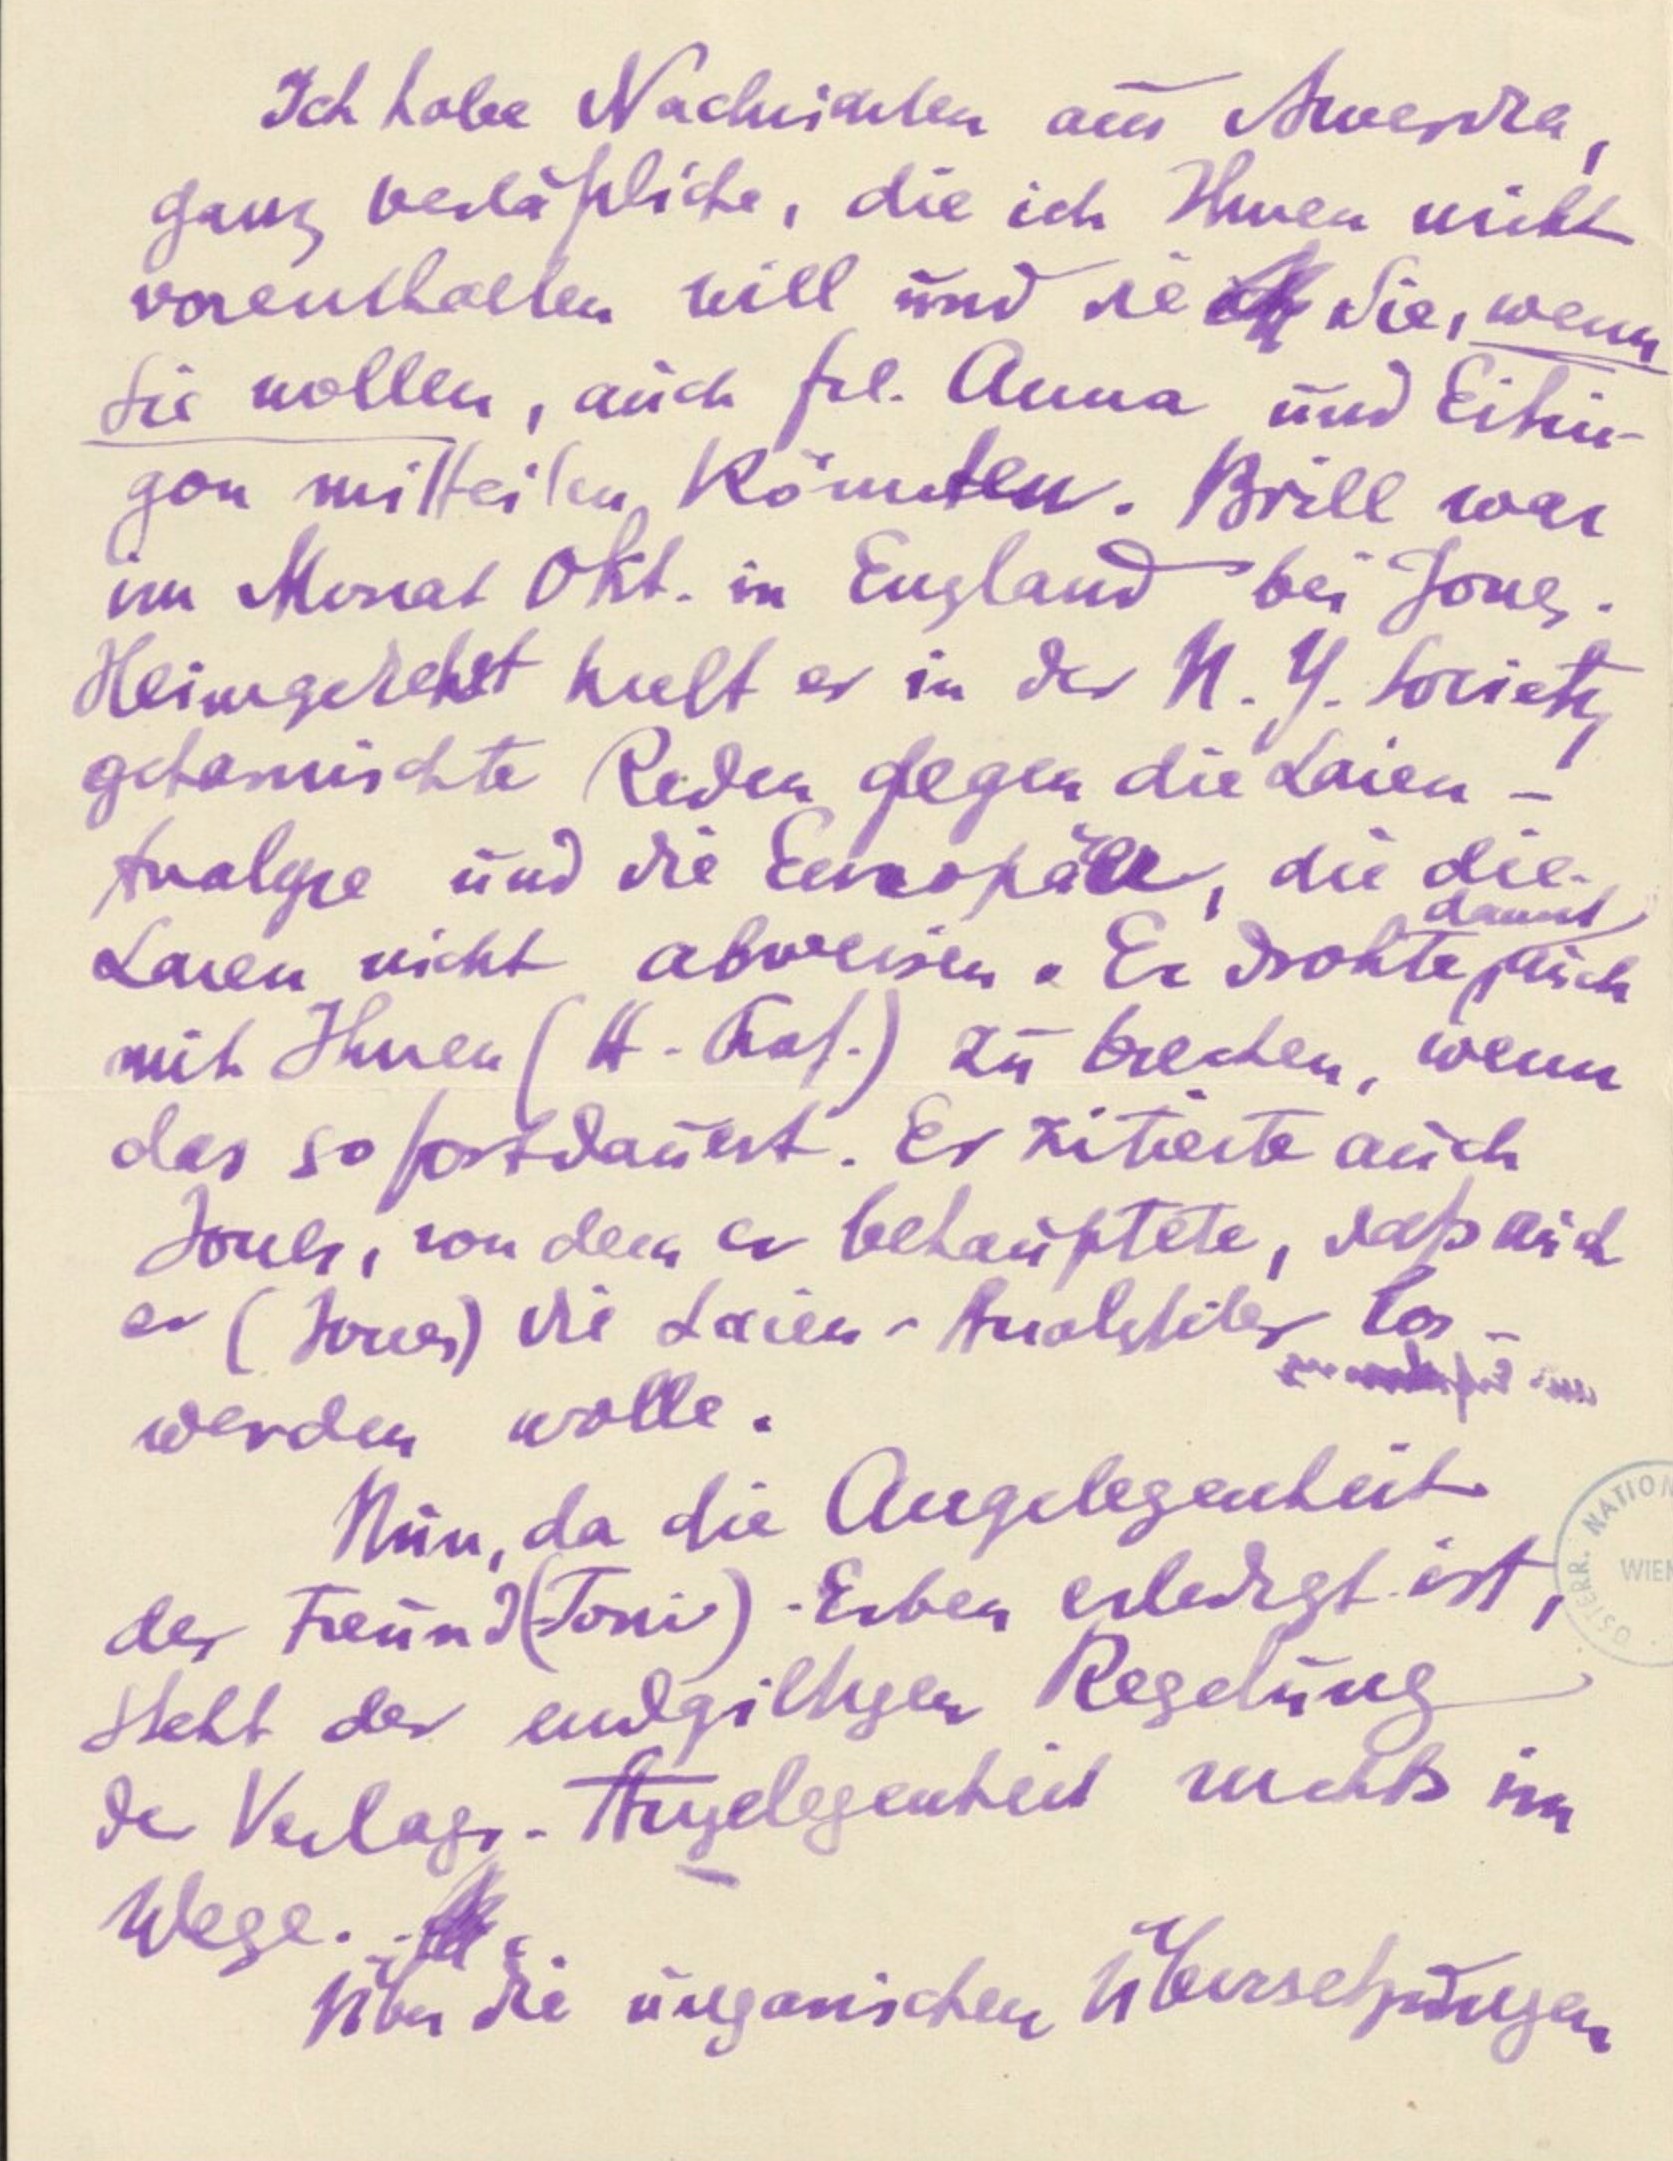 Ich habe Nachrichten aus Amerika,
ganz verläßliche, die ich Ihnen nicht
vorenthalten will und die Sie, wenn
Sie wollen, auch Frl. Anna und Eitin-
gon mitteilen könnten. Brill war
im Monat Okt. in England bei Jones.
Heimgekehrt hielt er in der N. Y. Society
geharnischte Reden gegen die Laien-
Analyse und die Europäer, die die
Laien nicht abweisen. Er drohte damit, auch
mit Ihnen (H. Prof.) zu brechen, wenn
das so fortdauert. Er zitierte auch
Jones, von dem er behauptete, daß auch
er (Jones) die Laien-Analytiker los-
werden wolle.
Nun, da die Angelegenheit
der Freund (Toni)-Erben erledigt ist,
steht der endgiltigen Regelung
der Verlags-Angelegenheit nichts im
Wege.
Über die ungarischen Übersetzungen
ÖSTERR. NATION
WIEN